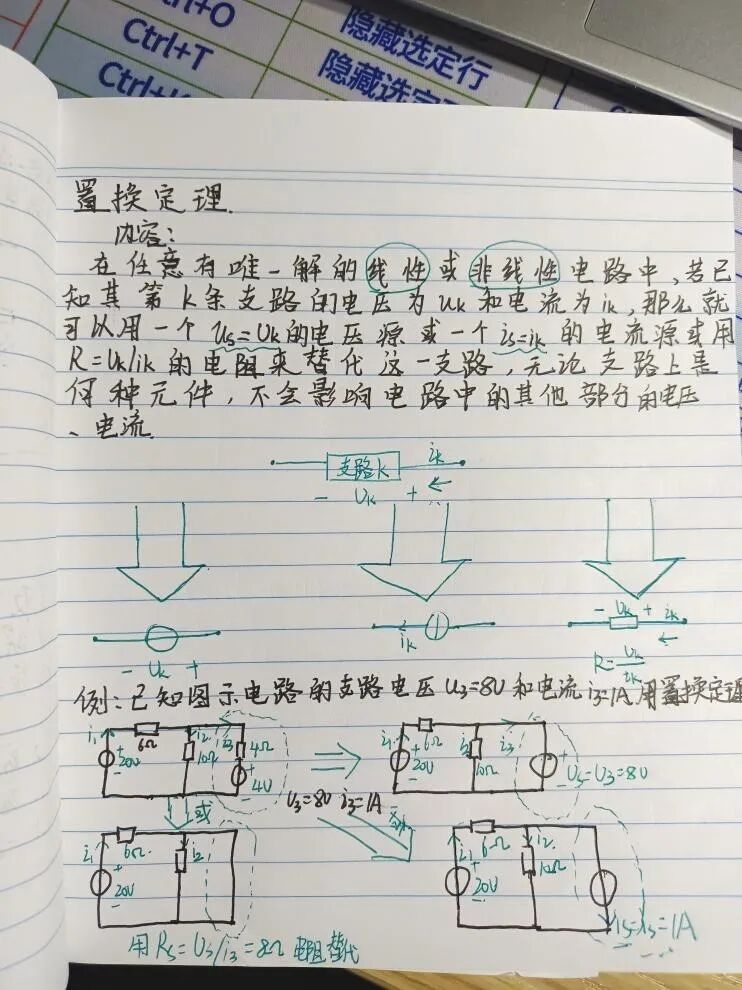 trl+O
隐藏选定行
Ctrl+T
隐藏选定
Ctrl+
Ctrl
置换定理.
内容:
在任意有唯一解的线性或非线性电路中,若已
知其第k条支路的电压为uk和电流为ik,那么就
可以用一个us=uk的电压源或一个is=ik的电流源或用
R=uk/ik的电阻来替代这一支路,无论支路上是
何种元件,不会影响电路中的其他部分的电压
、电流.
支路k
ik
- Uk +
- Uk +
ik
- Uk + ik
R=Uk/ik
例:已知图示电路的支路电压U3=8V和电流i3=1A用置换定理
i1 6Ω i2 i3 4Ω
+ 20V - 10Ω + 4V -
i1 6Ω i2 i3
+ 20V - 10Ω + Us=U3=8V -
或
U3=8V i3=1A
i1 6Ω i2
+ 20V -
i1 6Ω i2
+ 20V - 10Ω
is=i3=1A
用Rs=U3/i3=8Ω电阻替代